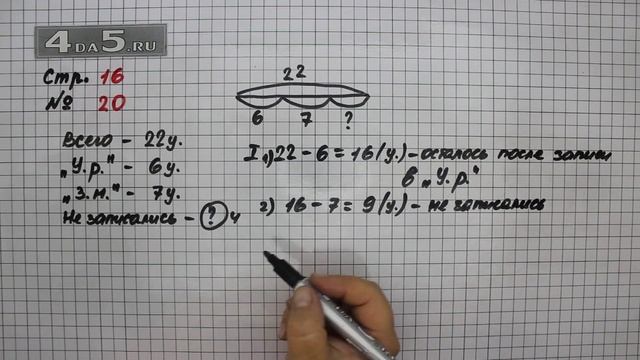 4DA5.RU
Стр. 16
№ 20
22
6 7 ?
Всего – 22у.
„У.р." – 6у.
„З.м." – 7у.
Не записались – ?
I 1) 22 – 6 = 16 (у.) – осталось после записи
в „У.р."
2) 16 – 7 = 9 (у.) – не записались